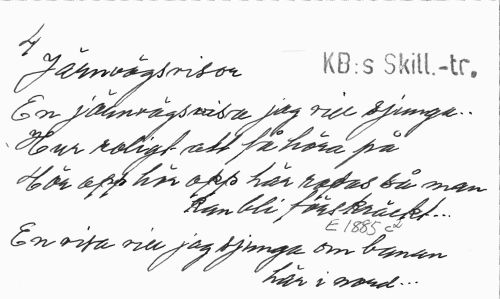 4
Järnvägsvisor
KB:s Skill.-tr.
En järnvägsvisa jag vill sjunga..
Hur roligt att få höra på
Hör opp hör opp här ropas så man
kan bli förskräckt...
E 1885 c2
En visa vill jag sjunga om banan
här i nord...